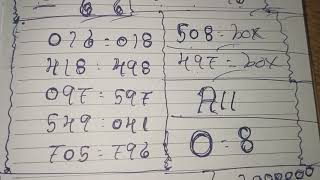 66
076=078
418=498
097=597
549=041
705=796
508=box
497=box
All
0=8